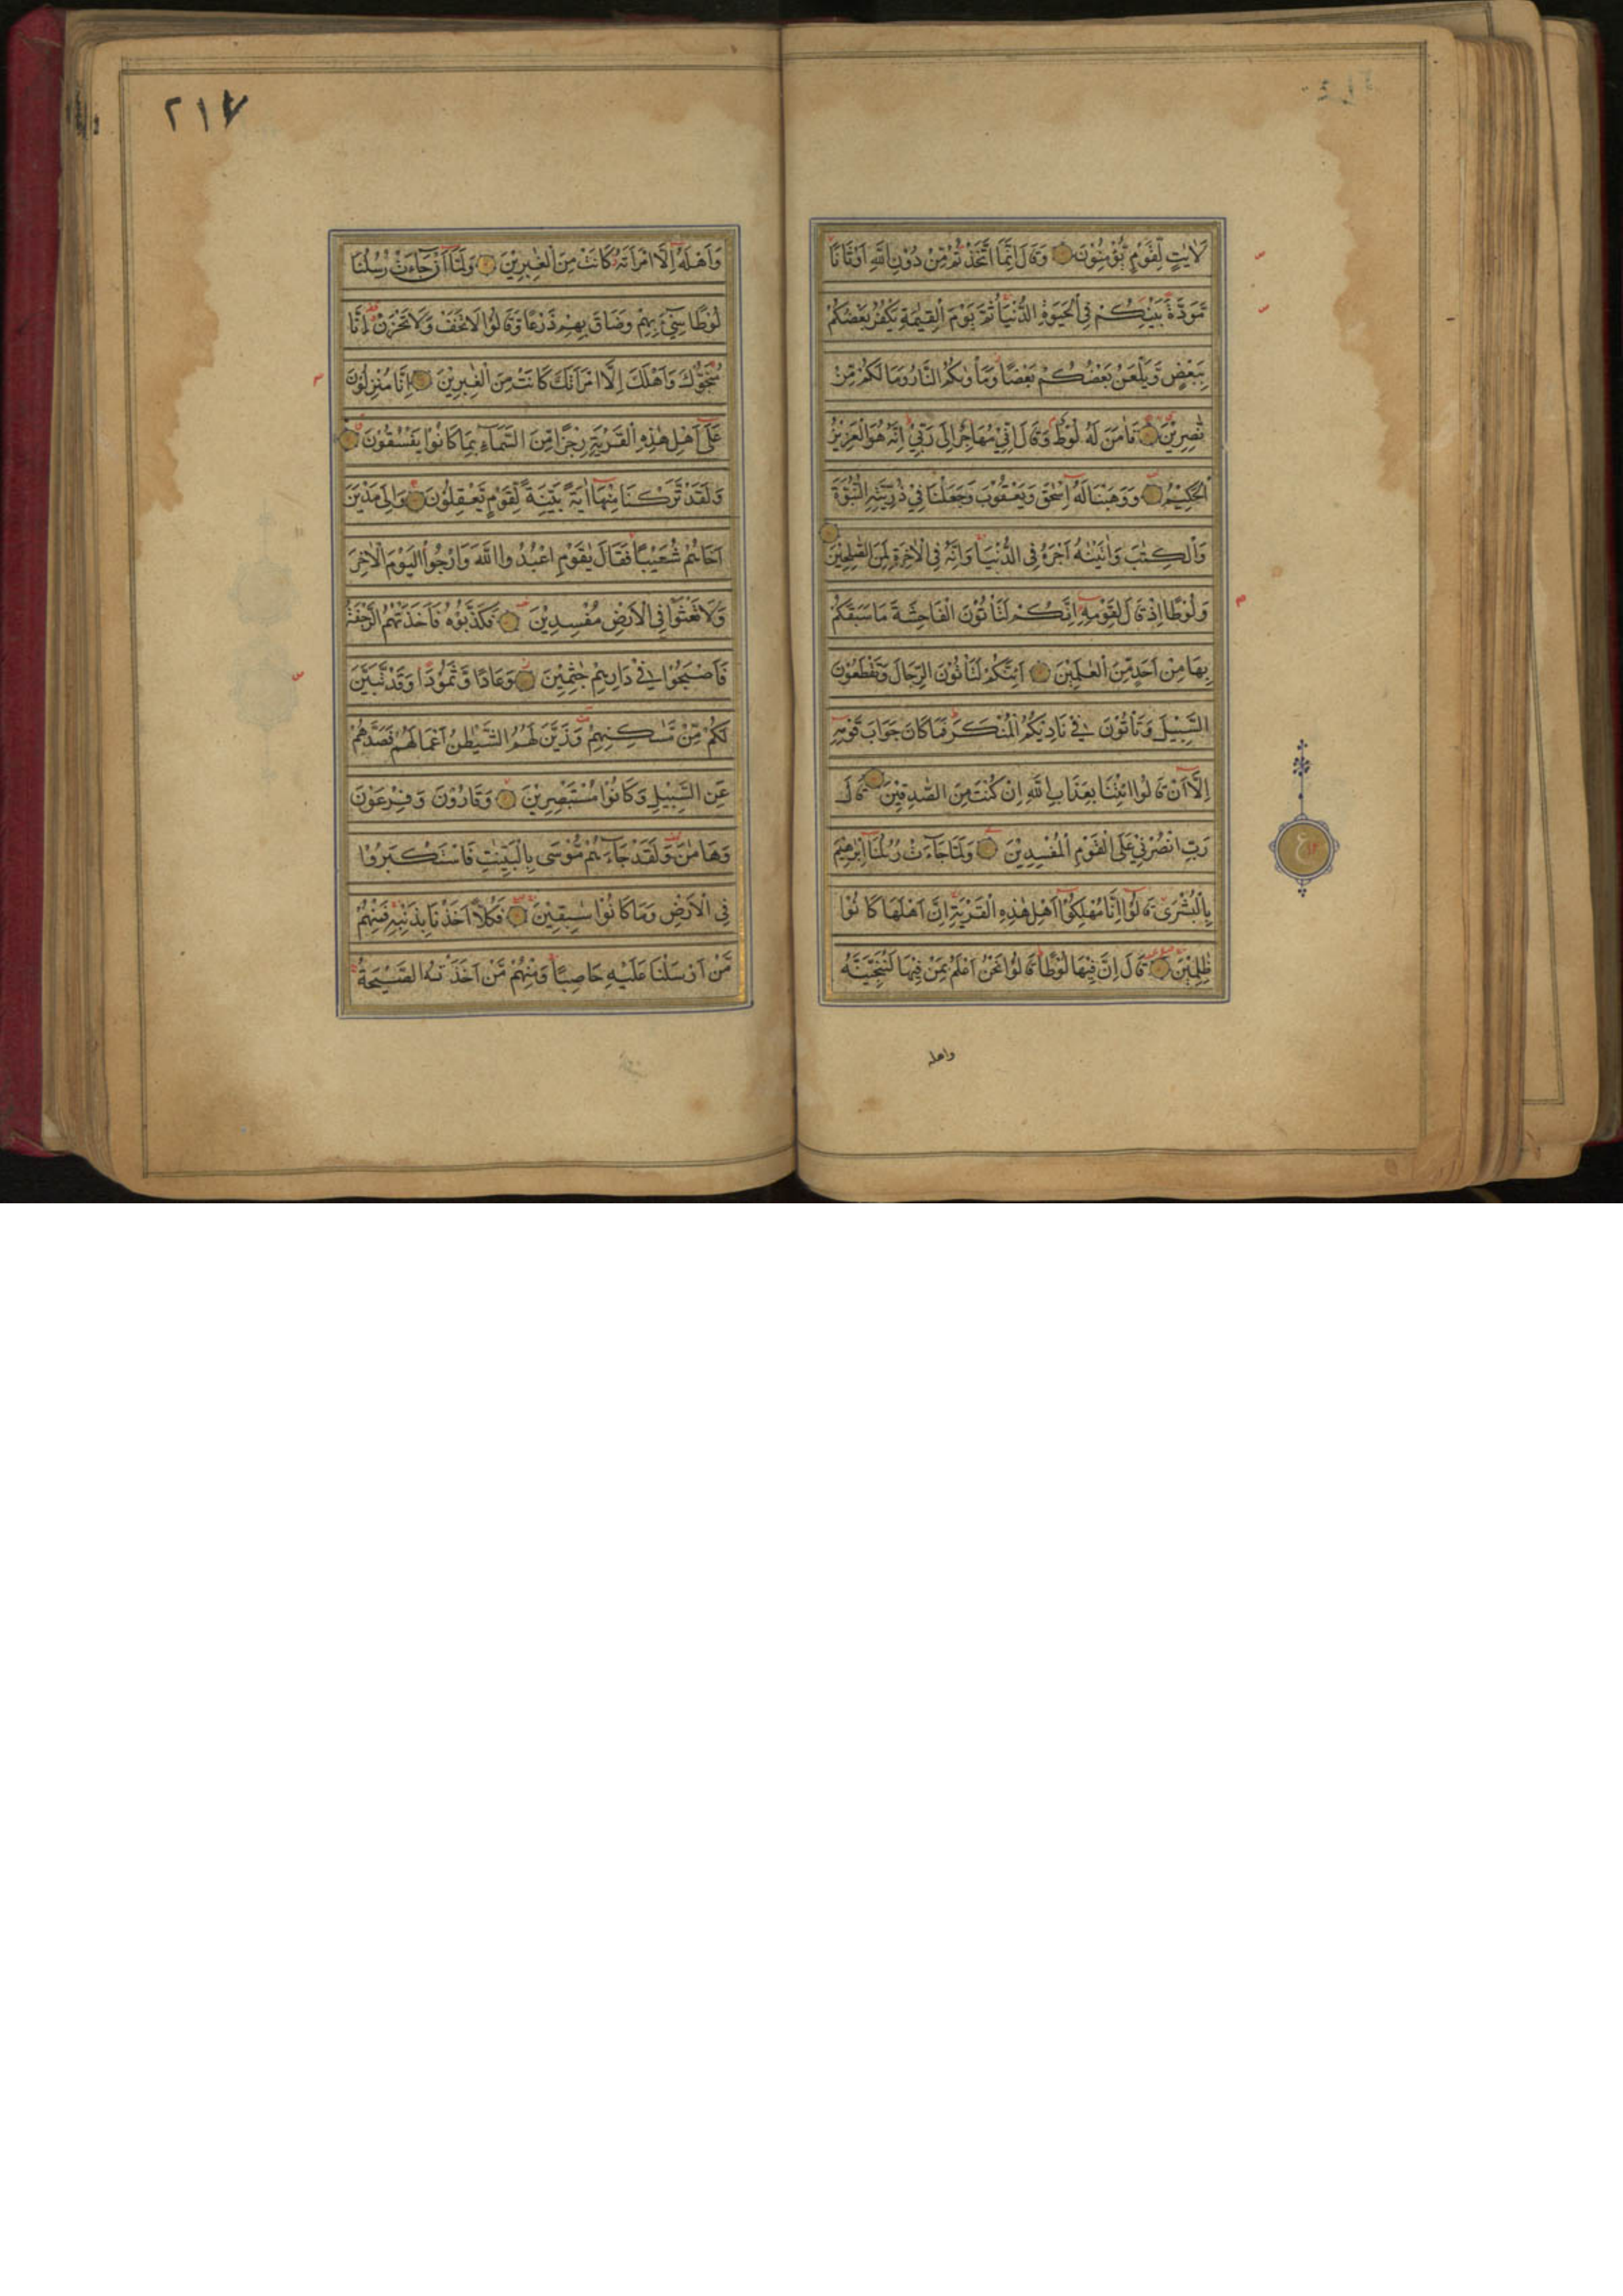 لَاٰيٰتٍ لِّقَوْمٍ يُّؤْمِنُوْنَ وَقَالَ اِنَّمَا اتَّخَذْتُمْ مِّنْ دُوْنِ اللّٰهِ اَوْثَانًا
مَّوَدَّةَ بَيْنِكُمْ فِي الْحَيٰوةِ الدُّنْيَا ثُمَّ يَوْمَ الْقِيٰمَةِ يَكْفُرُ بَعْضُكُمْ
بِبَعْضٍ وَّيَلْعَنُ بَعْضُكُمْ بَعْضًا وَّمَاْوٰىكُمُ النَّارُ وَمَا لَكُمْ مِّنْ
نّٰصِرِيْنَ فَاٰمَنَ لَهٗ لُوْطٌ وَقَالَ اِنِّيْ مُهَاجِرٌ اِلٰى رَبِّيْ اِنَّهٗ هُوَ الْعَزِيْزُ
الْحَكِيْمُ وَوَهَبْنَا لَهٗ اِسْحٰقَ وَيَعْقُوْبَ وَجَعَلْنَا فِيْ ذُرِّيَّتِهِ النُّبُوَّةَ
وَالْكِتٰبَ وَاٰتَيْنٰهُ اَجْرَهٗ فِي الدُّنْيَا وَاِنَّهٗ فِي الْاٰخِرَةِ لَمِنَ الصّٰلِحِيْنَ
وَلُوْطًا اِذْ قَالَ لِقَوْمِهٖ اِنَّكُمْ لَتَاْتُوْنَ الْفَاحِشَةَ مَا سَبَقَكُمْ
بِهَا مِنْ اَحَدٍ مِّنَ الْعٰلَمِيْنَ اَئِنَّكُمْ لَتَاْتُوْنَ الرِّجَالَ وَتَقْطَعُوْنَ
السَّبِيْلَ وَتَاْتُوْنَ فِيْ نَادِيْكُمُ الْمُنْكَرَ فَمَا كَانَ جَوَابَ قَوْمِهٖ
اِلَّا اَنْ قَالُوا ائْتِنَا بِعَذَابِ اللّٰهِ اِنْ كُنْتَ مِنَ الصّٰدِقِيْنَ قَالَ
رَبِّ انْصُرْنِيْ عَلَى الْقَوْمِ الْمُفْسِدِيْنَ وَلَمَّا جَآءَتْ رُسُلُنَا اِبْرٰهِيْمَ
بِالْبُشْرٰى قَالُوْا اِنَّا مُهْلِكُوْا اَهْلِ هٰذِهِ الْقَرْيَةِ اِنَّ اَهْلَهَا كَانُوْا
ظٰلِمِيْنَ قَالَ اِنَّ فِيْهَا لُوْطًا قَالُوْا نَحْنُ اَعْلَمُ بِمَنْ فِيْهَا لَنُنَجِّيَنَّهٗ
واهله
٢١٧
وَاَهْلَهٗ اِلَّا امْرَاَتَهٗ كَانَتْ مِنَ الْغٰبِرِيْنَ وَلَمَّا اَنْ جَآءَتْ رُسُلُنَا
لُوْطًا سِيْٓءَ بِهِمْ وَضَاقَ بِهِمْ ذَرْعًا وَّقَالُوْا لَا تَخَفْ وَلَا تَحْزَنْ اِنَّا
مُنَجُّوْكَ وَاَهْلَكَ اِلَّا امْرَاَتَكَ كَانَتْ مِنَ الْغٰبِرِيْنَ اِنَّا مُنْزِلُوْنَ
عَلٰى اَهْلِ هٰذِهِ الْقَرْيَةِ رِجْزًا مِّنَ السَّمَآءِ بِمَا كَانُوْا يَفْسُقُوْنَ
وَلَقَدْ تَّرَكْنَا مِنْهَا اٰيَةً بَيِّنَةً لِّقَوْمٍ يَّعْقِلُوْنَ وَاِلٰى مَدْيَنَ
اَخَاهُمْ شُعَيْبًا فَقَالَ يٰقَوْمِ اعْبُدُوا اللّٰهَ وَارْجُوا الْيَوْمَ الْاٰخِرَ
وَلَا تَعْثَوْا فِي الْاَرْضِ مُفْسِدِيْنَ فَكَذَّبُوْهُ فَاَخَذَتْهُمُ الرَّجْفَةُ
فَاَصْبَحُوْا فِيْ دَارِهِمْ جٰثِمِيْنَ وَعَادًا وَّثَمُوْدَا وَقَدْ تَّبَيَّنَ
لَكُمْ مِّنْ مَّسٰكِنِهِمْ وَزَيَّنَ لَهُمُ الشَّيْطٰنُ اَعْمَالَهُمْ فَصَدَّهُمْ
عَنِ السَّبِيْلِ وَكَانُوْا مُسْتَبْصِرِيْنَ وَقَارُوْنَ وَفِرْعَوْنَ
وَهَامٰنَ وَلَقَدْ جَآءَهُمْ مُّوْسٰى بِالْبَيِّنٰتِ فَاسْتَكْبَرُوْا
فِي الْاَرْضِ وَمَا كَانُوْا سٰبِقِيْنَ فَكُلًّا اَخَذْنَا بِذَنْبِهٖ فَمِنْهُمْ
مَّنْ اَرْسَلْنَا عَلَيْهِ حَاصِبًا وَمِنْهُمْ مَّنْ اَخَذَتْهُ الصَّيْحَةُ